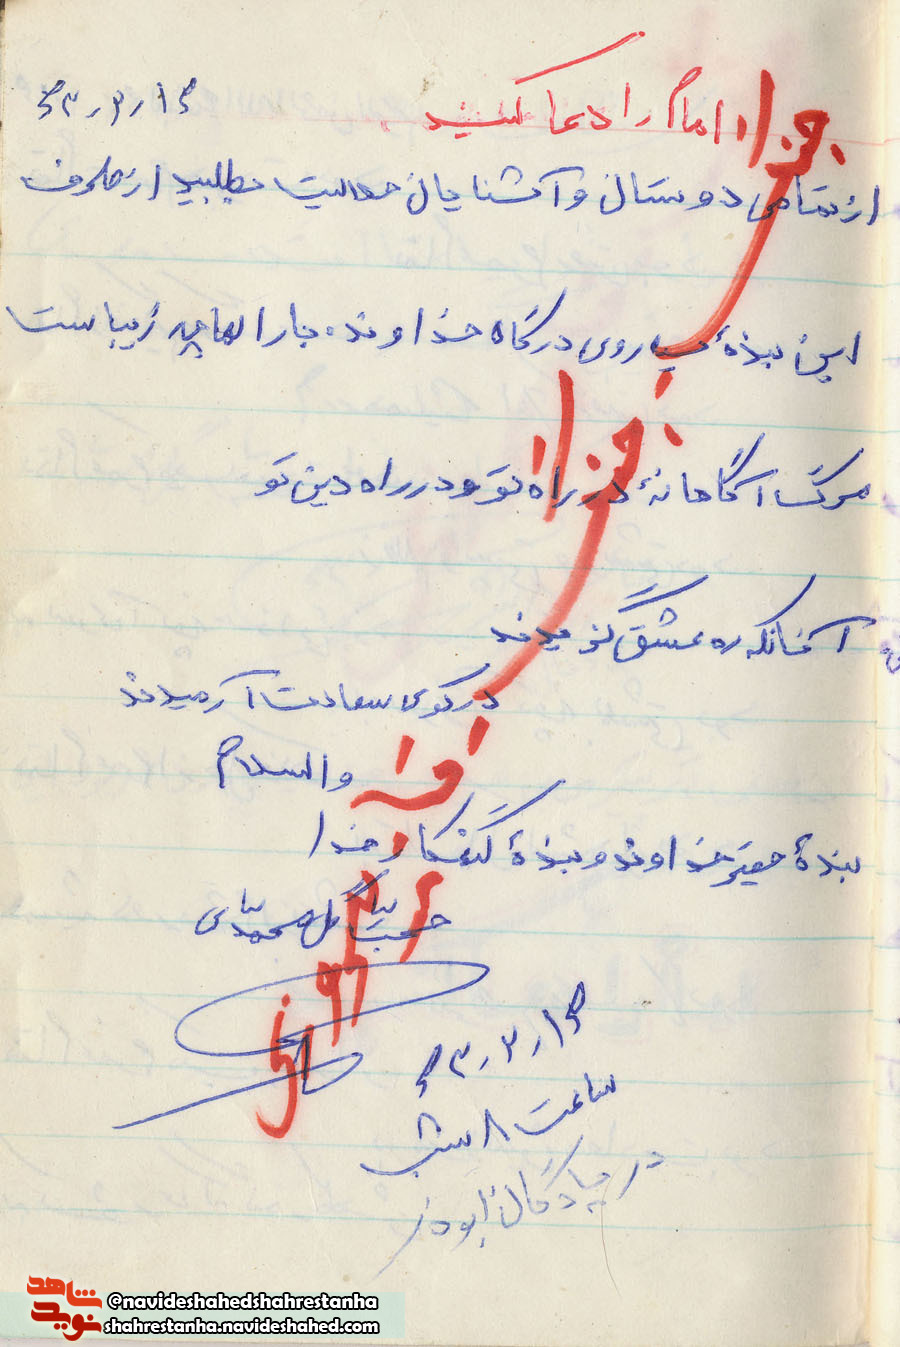 امام را دعا کنید
۶۳٫۲٫۱۶
از تمامی دوستان و آشنایان حلالیت بطلبید از طرف
این بندهٔ بی روی درگاه خداوند. بارالها چه زیباست
مرگ آگاهانهٔ در راه تو و در راه دین تو
آنانکه ره عشق گزیدند
در کوی سعادت آرمیدند
والسلام
بندهٔ حقیر خداوند و بندهٔ گنهکار خدا
گل محمدیانی
۶۳٫۲٫۱۶
ساعت ۸ شب
در پادگان ابوذر
خدا
خدا
شاهد
نوید
@navideshahedshahrestanha
shahrestanha.navideshahed.com